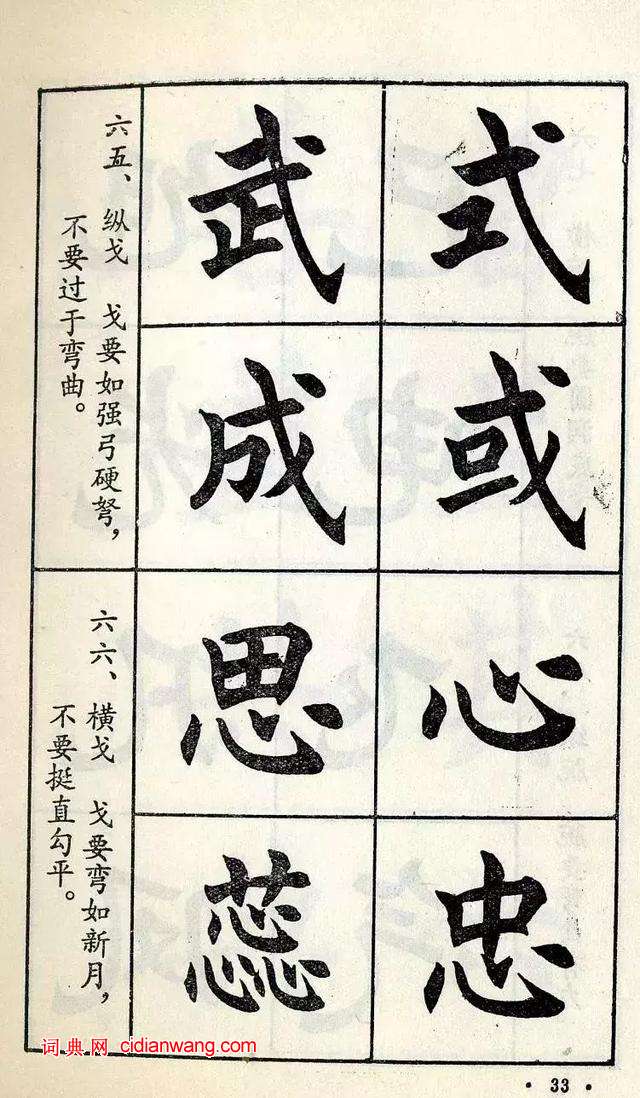 式
武
或
成
六五、纵戈 戈要如强弓硬弩，
不要过于弯曲。
心
思
忠
蕊
六六、横戈 戈要弯如新月，
不要挺直勾平。
词典网 cidianwang.com
• 33 •